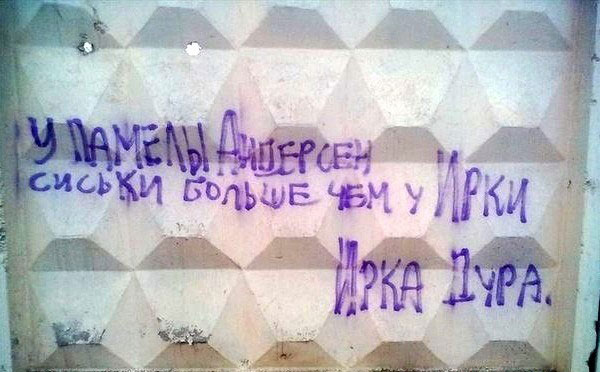 У ПАМЕЛЫ АНДЕРСЕН
СИСЬКИ БОЛЬШЕ ЧЕМ У ИРКИ
ИРКА ДУРА.